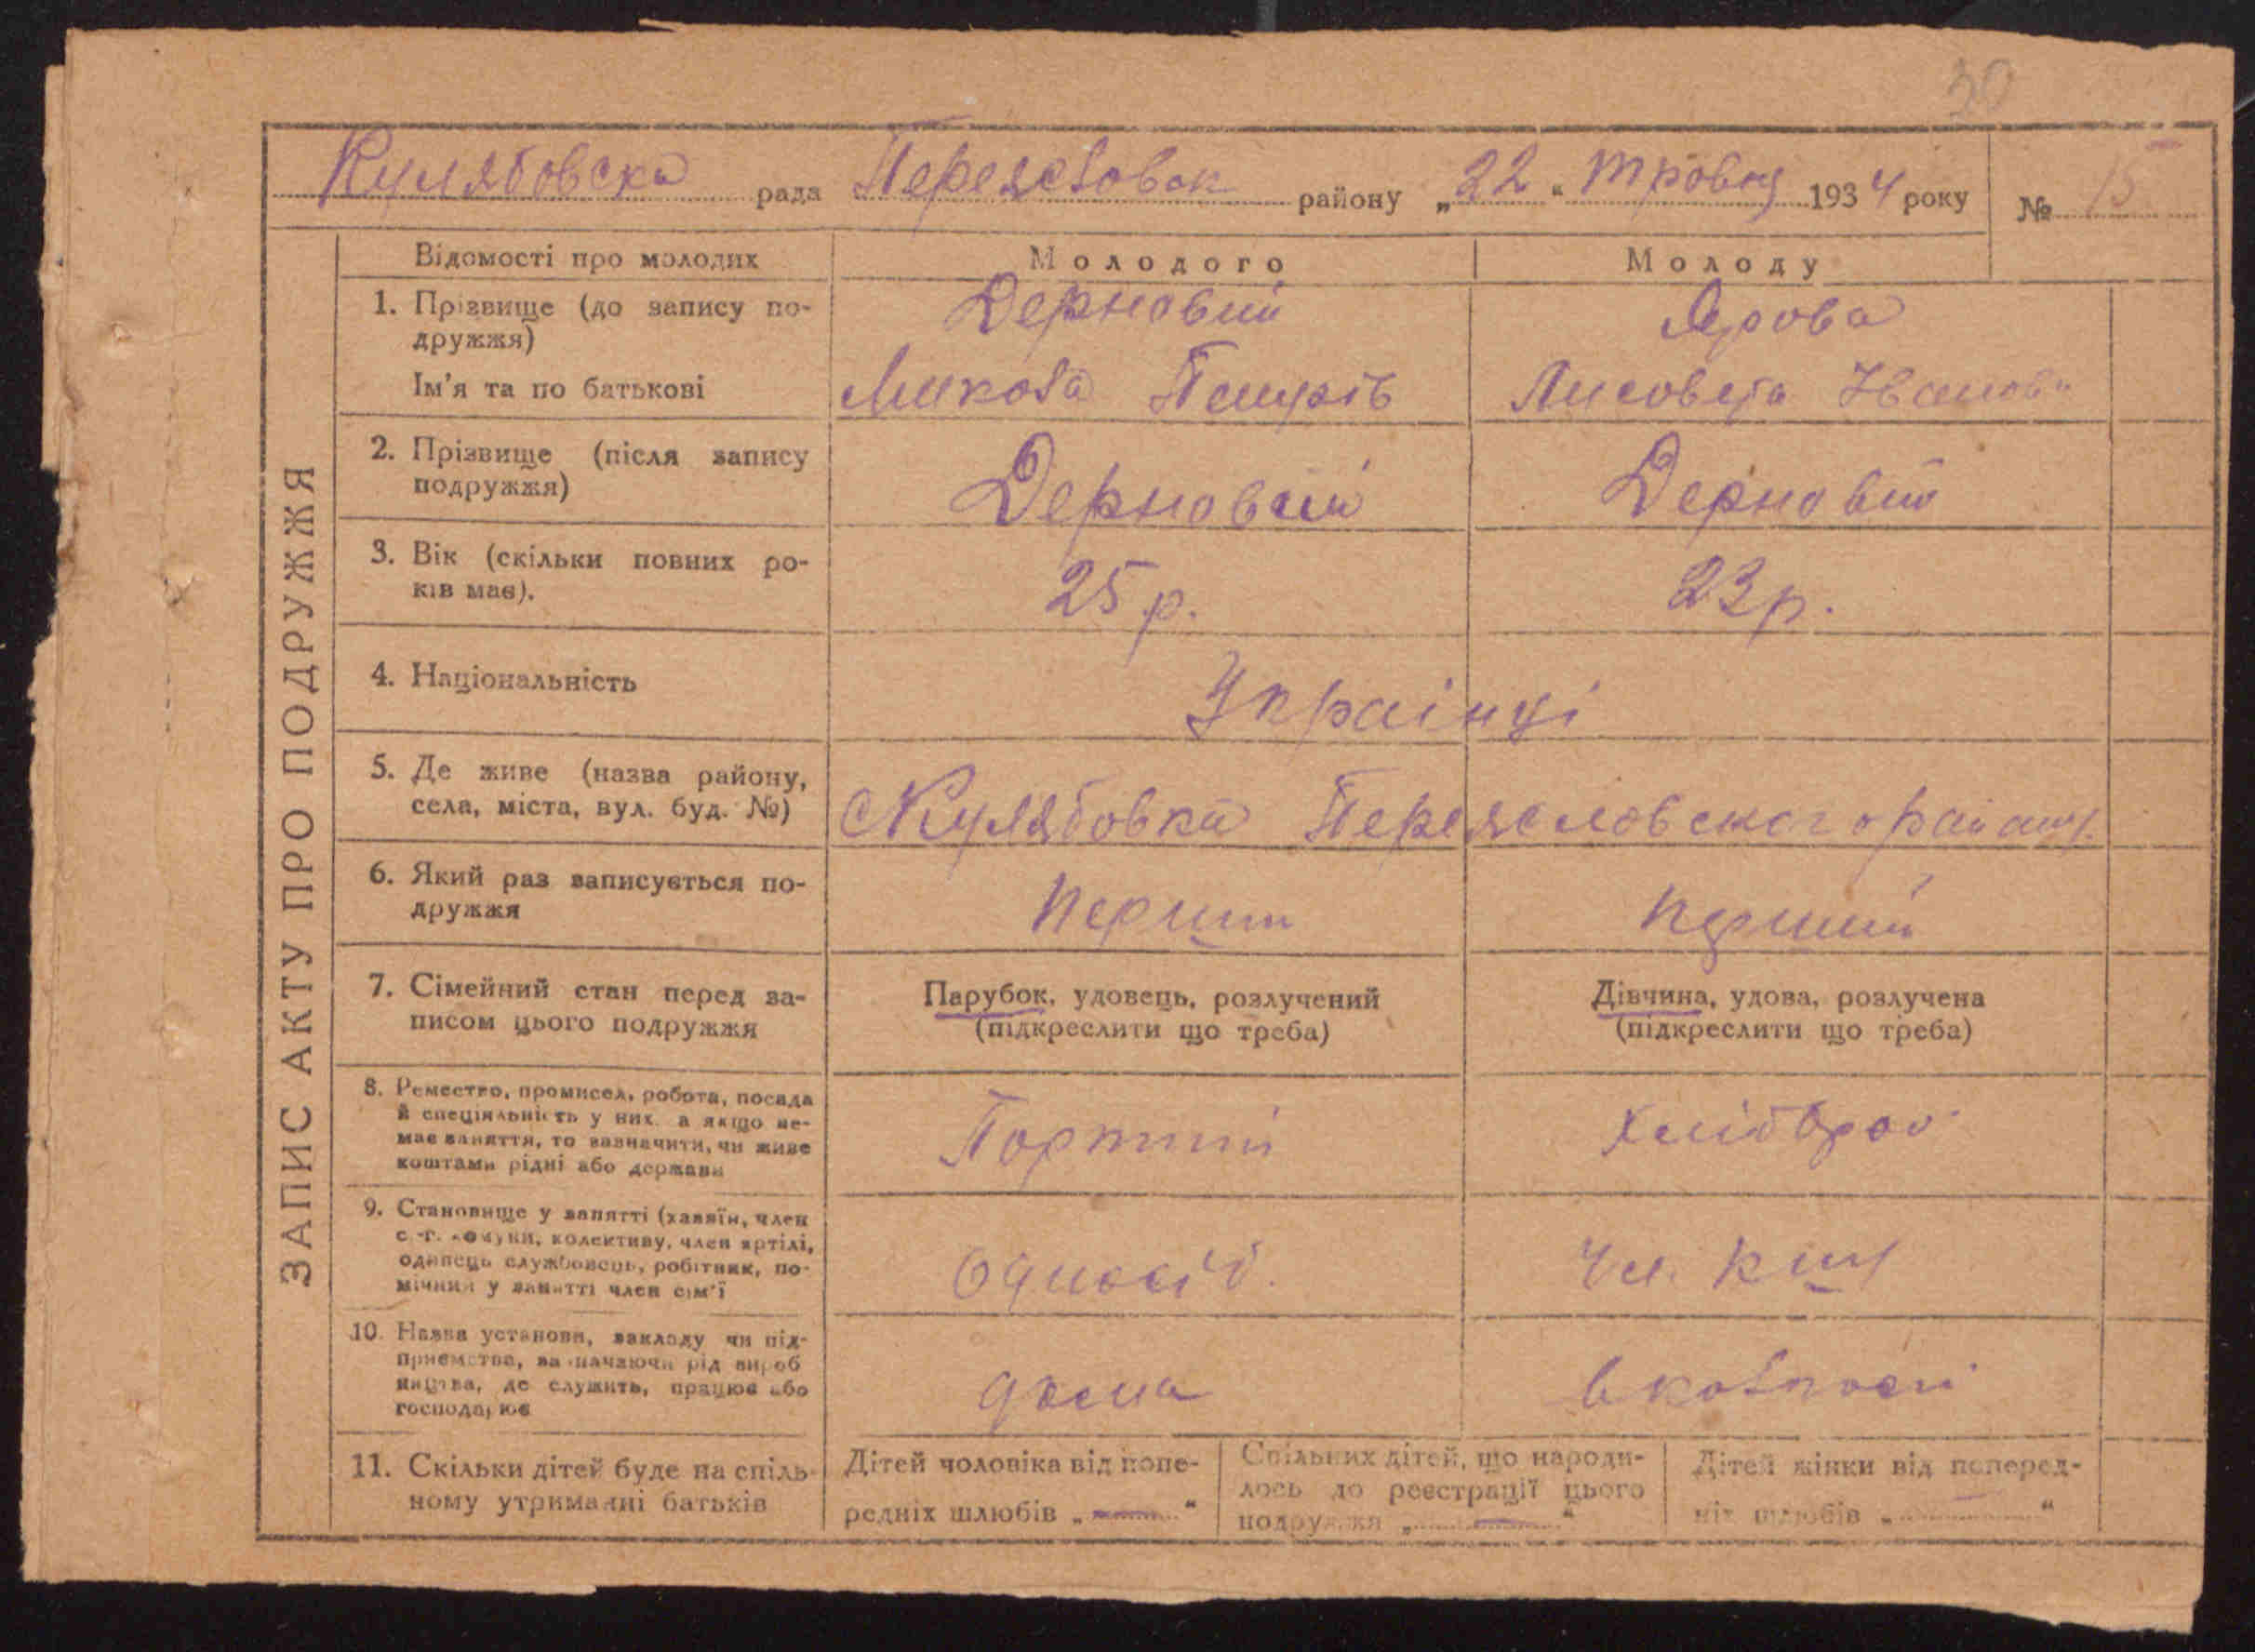 30
Кулябовска рада Переяславск району „22“ травня 1934 року № 15
ЗАПИС АКТУ ПРО ПОДРУЖЖЯ
Відомості про молодих
Молодого
Молоду
1. Прізвище (до запису по-
дружжя)
Дерновий
Ярова
Ім'я та по батькові
Микола
Лисовета Іванов
2. Прізвище (після запису
подружжя)
Дерновий
Дерновий
3. Вік (скільки повних ро-
ків має).
25 р.
23 р.
4. Національність
Украінці
5. Де живе (назва району,
села, міста, вул. буд. №)
с Кулябовка Переясловского району.
6. Який раз записується по-
дружжя
перший
перший
7. Сімейний стан перед за-
писом цього подружжя
Парубок, удовець, розлучений
(підкреслити що треба)
Дівчина, удова, розлучена
(підкреслити що треба)
8. Ремество, промисел, робота, посада
й спеціяльність у них, а якщо не-
має заняття, то зазначити, чи живе
коштами рідні або держави
Портний
Хлібороб
9. Становище у занятті (хазяїн, член
с.-г. комуни, колективу, член артілі,
одинець службовець, робітник, по-
мічний у занятті член сім'ї
Одноосіб.
Чл.
10. Назва установи, закладу чи під-
приємства, зазначаючи рід вироб
ництва, де служить, працює або
господарює
дома
в колгоспі
11. Скільки дітей буде на спіль-
ному утриманні батьків
Дітей чоловіка від попе-
редніх шлюбів „ — “
Спільних дітей, що народи-
лось до реєстрації цього
подружжя „ — “
Дітей жінки від поперед-
ніх шлюбів „ “